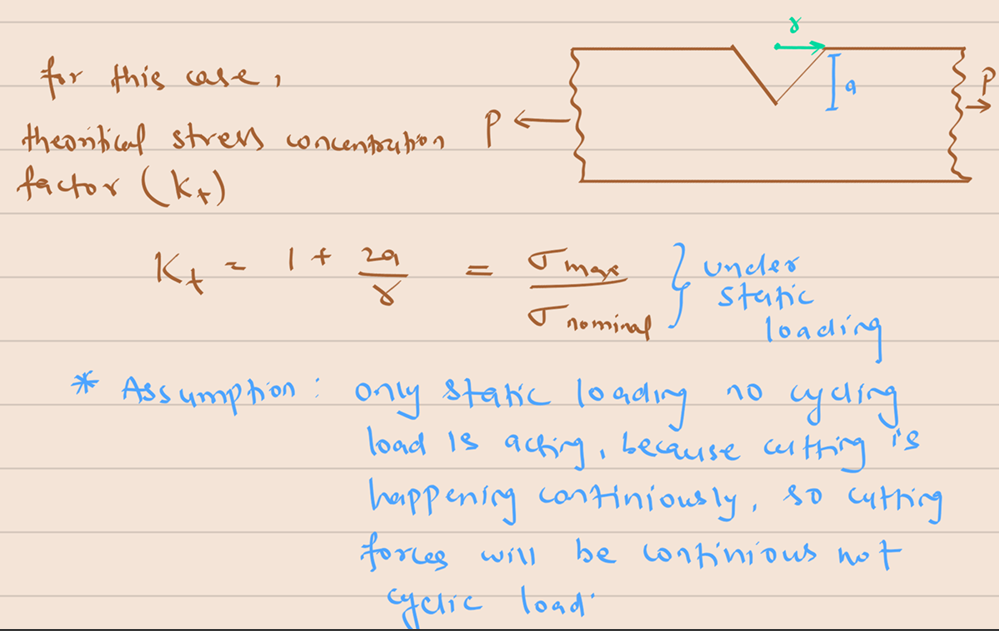 for this case,
theoritical stress concentration
factor (Kt)
γ
a
P
P
Kt = 1 + 2a/γ = σmax/σnominal } under
static
loading
* Assumption: only static loading no cycling
load is acting, because cutting is
happening continiously, so cutting
forces will be continious not
cyclic load.